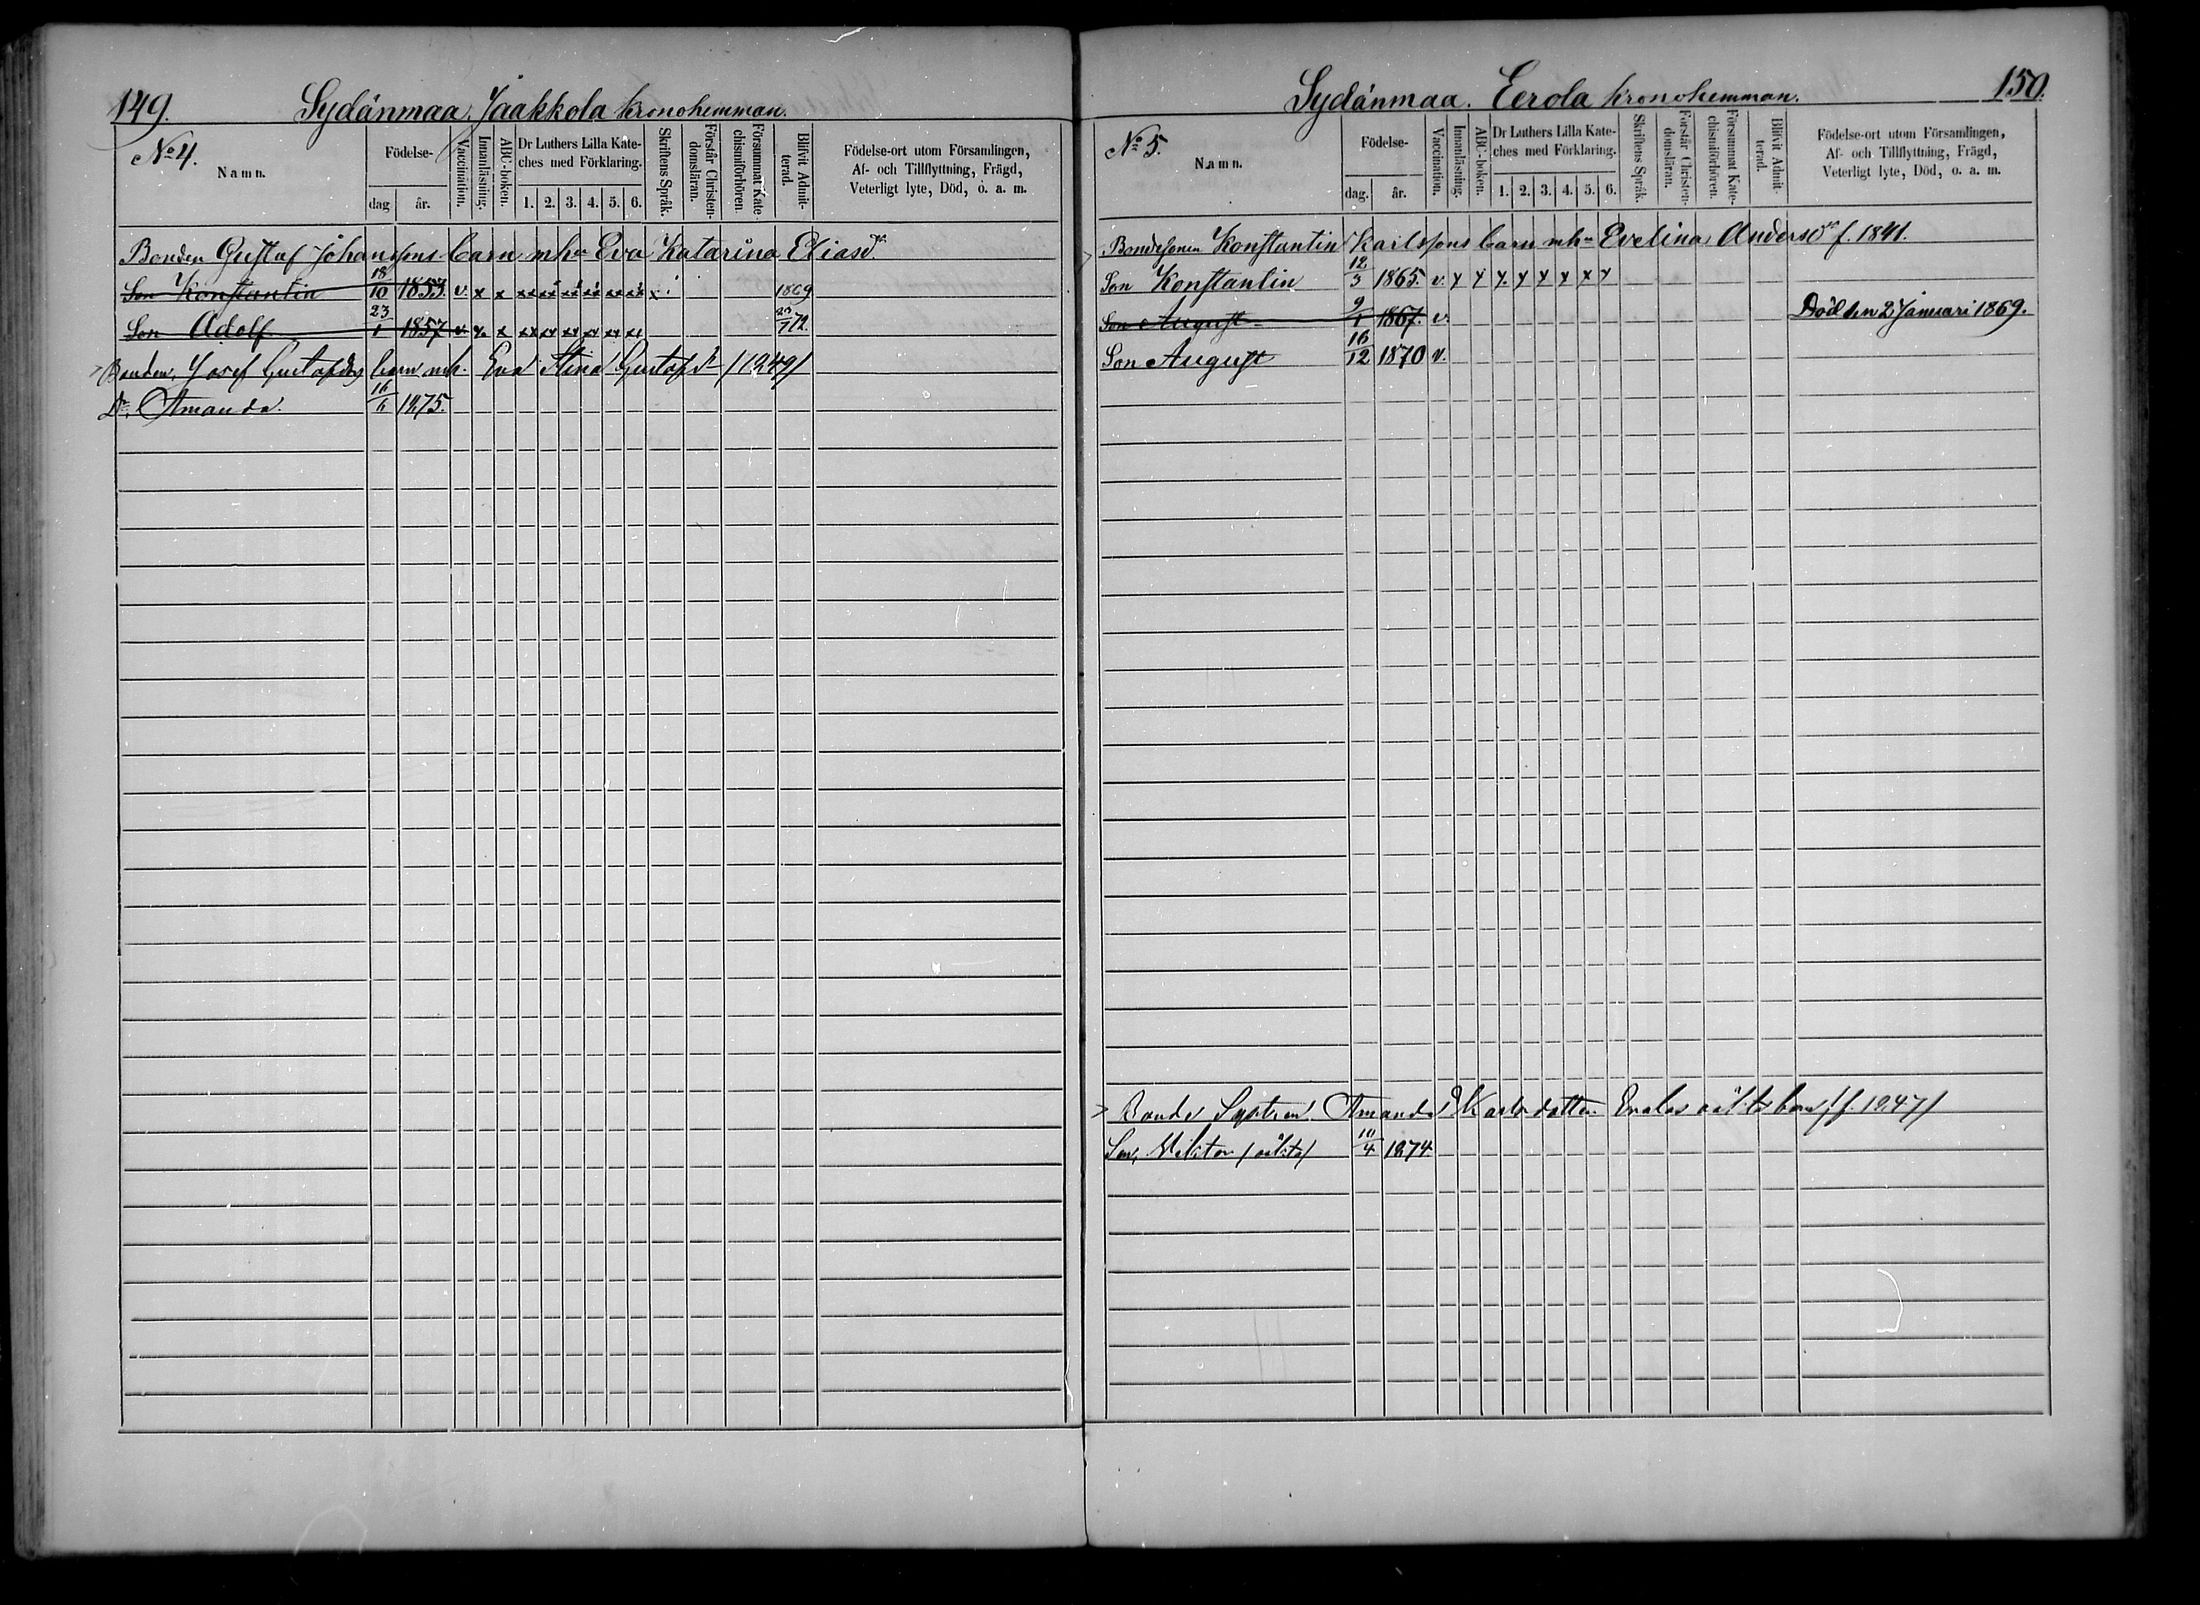 149.
Sydänmaa. Jaakkola kronohemman.
No 4.
Namn.
Födelse-
dag
år.
Vaccination.
Innanläsning.
ABC-boken.
Dr Luthers Lilla Kate-
ches med Förklaring.
1. 2. 3. 4. 5. 6.
Skriftens Språk.
Förstår Christen-
domsläran.
Försummat Kate-
chismiförhören.
Blifvit Admit-
terad.
Födelse-ort utom Församlingen,
Af- och Tillflyttning, Frägd,
Veterligt lyte, Död, o. a. m.
Bonden Gustaf Johanssons barn mh. Eva Katarina Eliasdr.
Son Konstantin 18/10 1853. v. x x xx xx xx xx xx xx x 1869
Son Adolf 23/1 1857 v. x x xx xx xx xx xx xx 23/7 72.
Bonden, Josef Gustafs barn mh. Eva Stina Gustafs /1849/
Dr. Amanda. 16/6 1875.
150.
Sydänmaa. Eerola kronohemman.
No 5.
Namn.
Födelse-
dag.
år.
Vaccination.
Innanläsning.
ABC-boken.
Dr Luthers Lilla Kate-
ches med Förklaring.
1. 2. 3. 4. 5. 6.
Skriftens Språk.
Förstår Christen-
domsläran.
Försummat Kate-
chismiförhören.
Blifvit Admit-
terad.
Födelse-ort utom Församlingen,
Af- och Tillflyttning, Frägd,
Veterligt lyte, Död, o. a. m.
Bondesonen Konstantin Karlssons barn mh. Evelina Andersdr f. 1841.
Son Konstantin 12/3 1865. v. x x x x x x x x
Son August 9/1 1867. v. Död den 2 Januari 1869.
Son August 16/12 1870 v.
Amanda Karlsdotter oäkta barn /f. 1847/
Son, Viktor /oäkta/ 10/4 1874